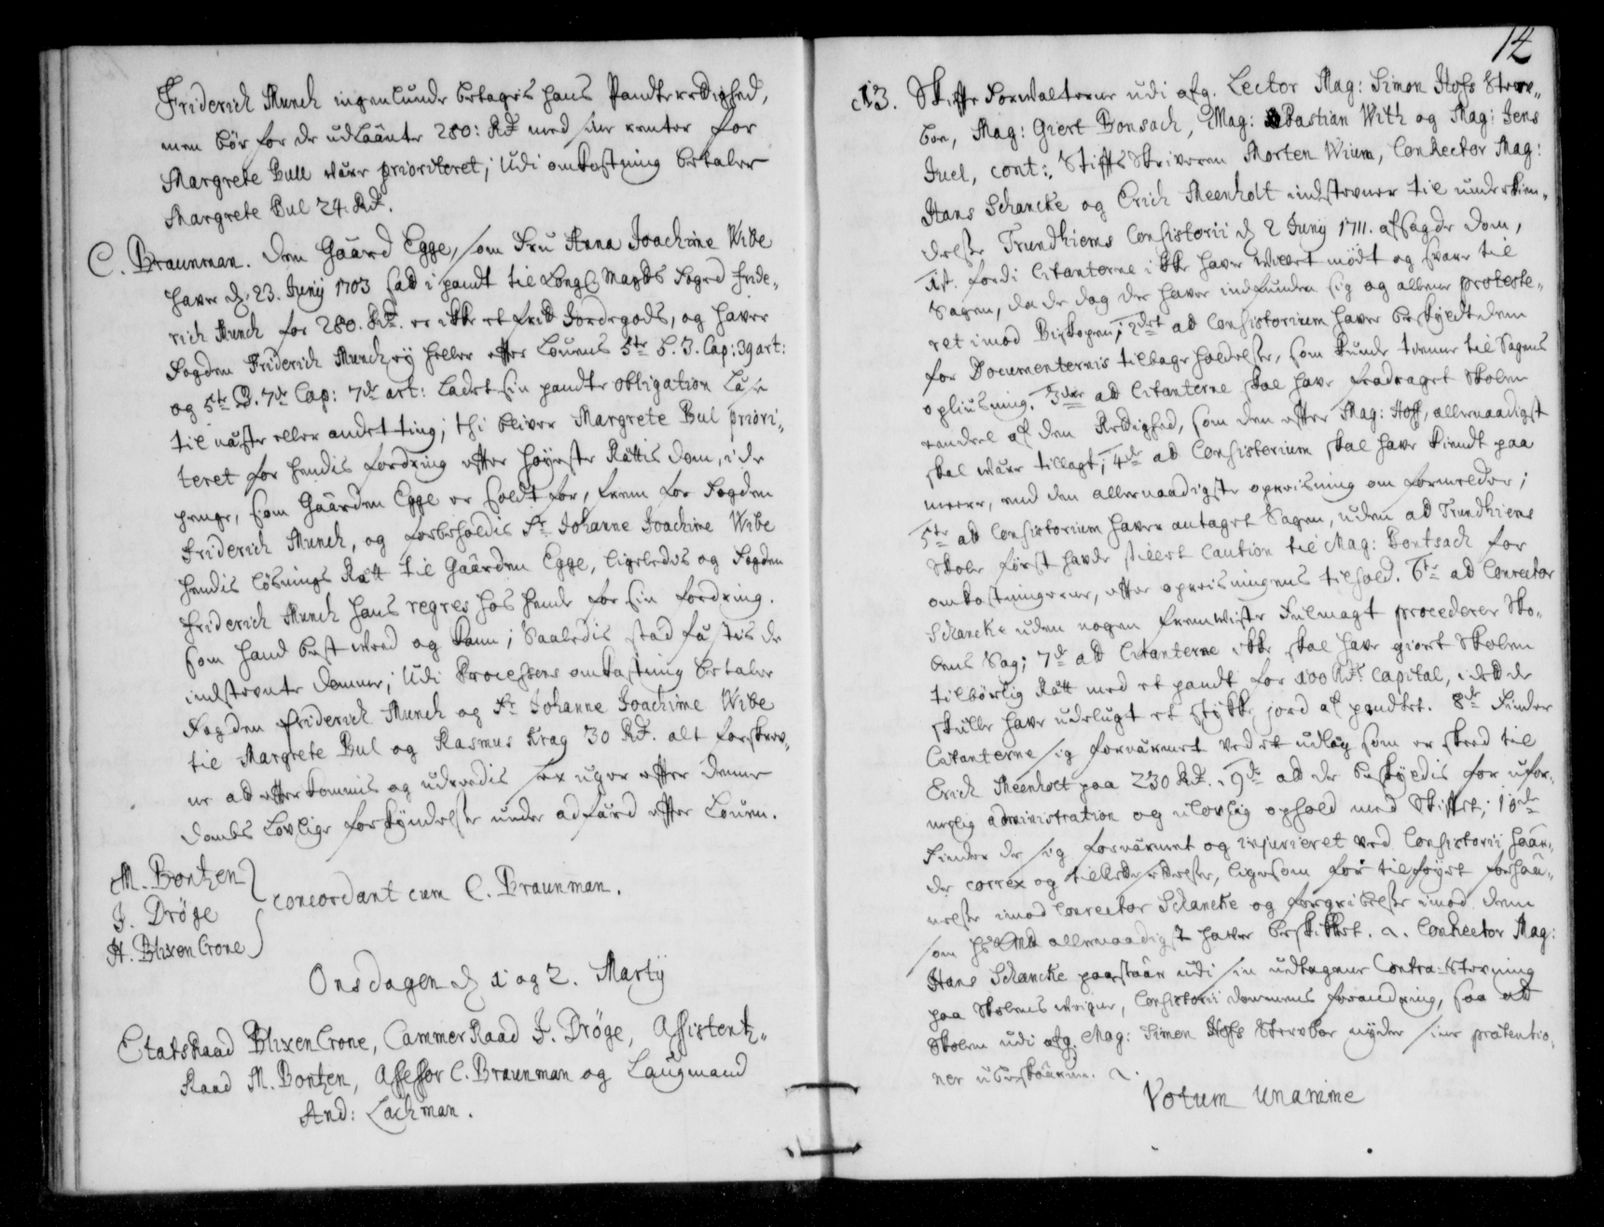 Friderich Munch ingenlunde betagis hans Pandterettighed,
men bør for de udlaante 280: Rdr med sine renter for
Margrete Bull være prioriteret; Udi omkostning betaler
Margrete Bul 24. Rdr.
C. Braunman. Den Gaard Egge, som Fru Anna Joachime Wibe
haver d. 23. Junij 1703 sad i pandt til Kongl. Mayts Foged Fride-
rich Munch for 280. Rdr. er ikke et frit Jordegods, og haver
Fogden Friderich Munch ej heller efter Louens 5te B. 3. Cap: 39 art:
og 5te B. 7de Cap: 7de art: ladet sin pandte obligation læse
til næste eller andet ting; thi bliver Margrete Bul priori-
teret for hendis fordring efter høyeste Rettis dom, i de
penge, som Gaarden Egge er soldt for, frem for Fogden
Friderich Munch, og forbeholdis Fr Johanne Joachime Wibe
hendis løsnings Ræt til Gaarden Egge, ligeledis og Fogden
Friderich Munch hans regres hos hende for sin fordring.
som hand best veed og kann; Saaledis stadfæstis de
indstevnte domme; Udi Processens omkostning betaler
Fogden Friderich Munch og Fr Johanne Joachime Wibe
til Margrete Bul og Rasmus Krag 30 Rdr. alt forskrev-
ne at efterkommis og udreedis sex uger efter denne
Dombs lovlige forkyndelse under adfærd efter Louen.
M. Bontzen
J. Drøge
H. Blixencrone
concordant cum C. Braunman.
Onsdagen d. 1 og 2. Martij
EtatsRaad Blixencrone, CammerRaad J. Drøge, Assistentz-
Raad M. Bontzen, Assessor C. Braunman og Laugmand
And: Lachman.
14
13. Skifte Forwalterne udi afg. Lector Mag: Simon Hofs Sterv-
boe, Mag: Giert Bonsach, Mag: Bastian With og Mag: Jens
Juel, cont: Stiffts Skriveren Morten Wium, ConRector Mag:
Hans Schancke og Erich Meenholt indstevner til underkien-
delse Trundhiems Consistorii d. 2 Junij 1711. afsagde Dom,
1st. fordi Citanterne ikke haver været mødt og svare til
Sagen, da de dog der haver indfunden sig og allene proteste-
ret imod Biskopen; 2det at Consistorium haver beskyldt dem
for Documenternis tilbageholdelse, som kunde tienne til Sagens
opliusning. 3die at Citanterne skal have fradraget Skolen
en deel af den Rettighed, som den efter Mag: Hoff, allernaadigst
skal være tillagt; 4de at Consistorium skal have kiendt paa
meere, end den allernaadigste opreisning om formelder;
5te at Consistorium haver antaget Sagen, uden at Trundhiems
Skole først havde stillet Caution til Mag: Bontsach for
omkostningerne, efter opreisningens tilhold. 6te at Conrector
Schancke uden nogen fremviiste Fulmagt procederer Sko-
lens Sag; 7de at Citanterne ikke skal have giort Skolen
tilbørlig Ræt med et pandt for 100 Rdrs Capital, i det de
skulle have udelugt et stykke jord af pandtet. 8de Finder
Citanterne sig fornærmet ved et udlæg som er skeed til
Erich Meenholt paa 230 Rdr. 9de at de beskyldis for ufor-
nøylig administration og ulovlig ophold med Skiftet; 10de
Finder de sig fornærmet og injurieret ved Consistorii haar-
de correx og tilrettesettelse, ligesom for tilføyet forhaa-
nelse imod Conrector Schancke og forgribelse imod dem
som allernaadigst haver beskikket. ConRector Mag:
Hans Schancke paastaar udi sin udtagene Contra-Stevning
paa Skolens veigne, Consistorii dommens forandring, saa at
Skolen udi afg. Mag: Simon Hofs Stervboe nyder sine prætentio-
ner ubeskaaren.
Votum unanime